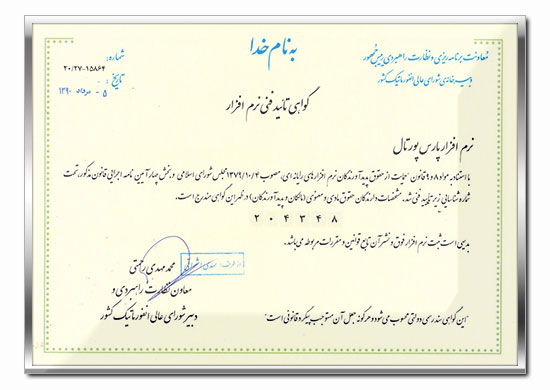 به نام خدا
معاونت برنامه ریزی و نظارت راهبردی رییس جمهور
دبیرخانه شورای عالی انفورماتیک کشور
شماره:
۲۰/۲۷-۱۵۸۶۴
تاریخ:
۵ - مرداد ۱۳۹۰
گواهی تائید فنی نرم افزار
نرم افزار پارس پورتال
با استناد مواد ۸ و ۹ قانون "حمایت از حقوق پدیدآورندگان نرم افزارهای رایانه ای، مصوب ۱۳۷۹/۱۰/۴ مجلس شورای اسلامی و بخش چهار آیین نامه اجرایی قانون مذکور، تحت
شماره شناسایی زیر تایید فنی شد. مشخصات دارندگان حقوق مادی و معنوی (مالکان و پدیدآورندگان) در ظهر این گواهی مندرج است.
۲۰۴۳۴۸
بدیهی است ثبت نرم افزار فوق و نشر آن تابع قوانین و مقررات مربوطه می باشد.
از طرف: مهدی
محمد مهدی رحمتی
معاون نظارت راهبردی و
دبیر شورای عالی انفورماتیک کشور
"این گواهی سند رسمی و دولتی محسوب می شود و هرگونه جعل آن مستوجب پیگرد قانونی است"